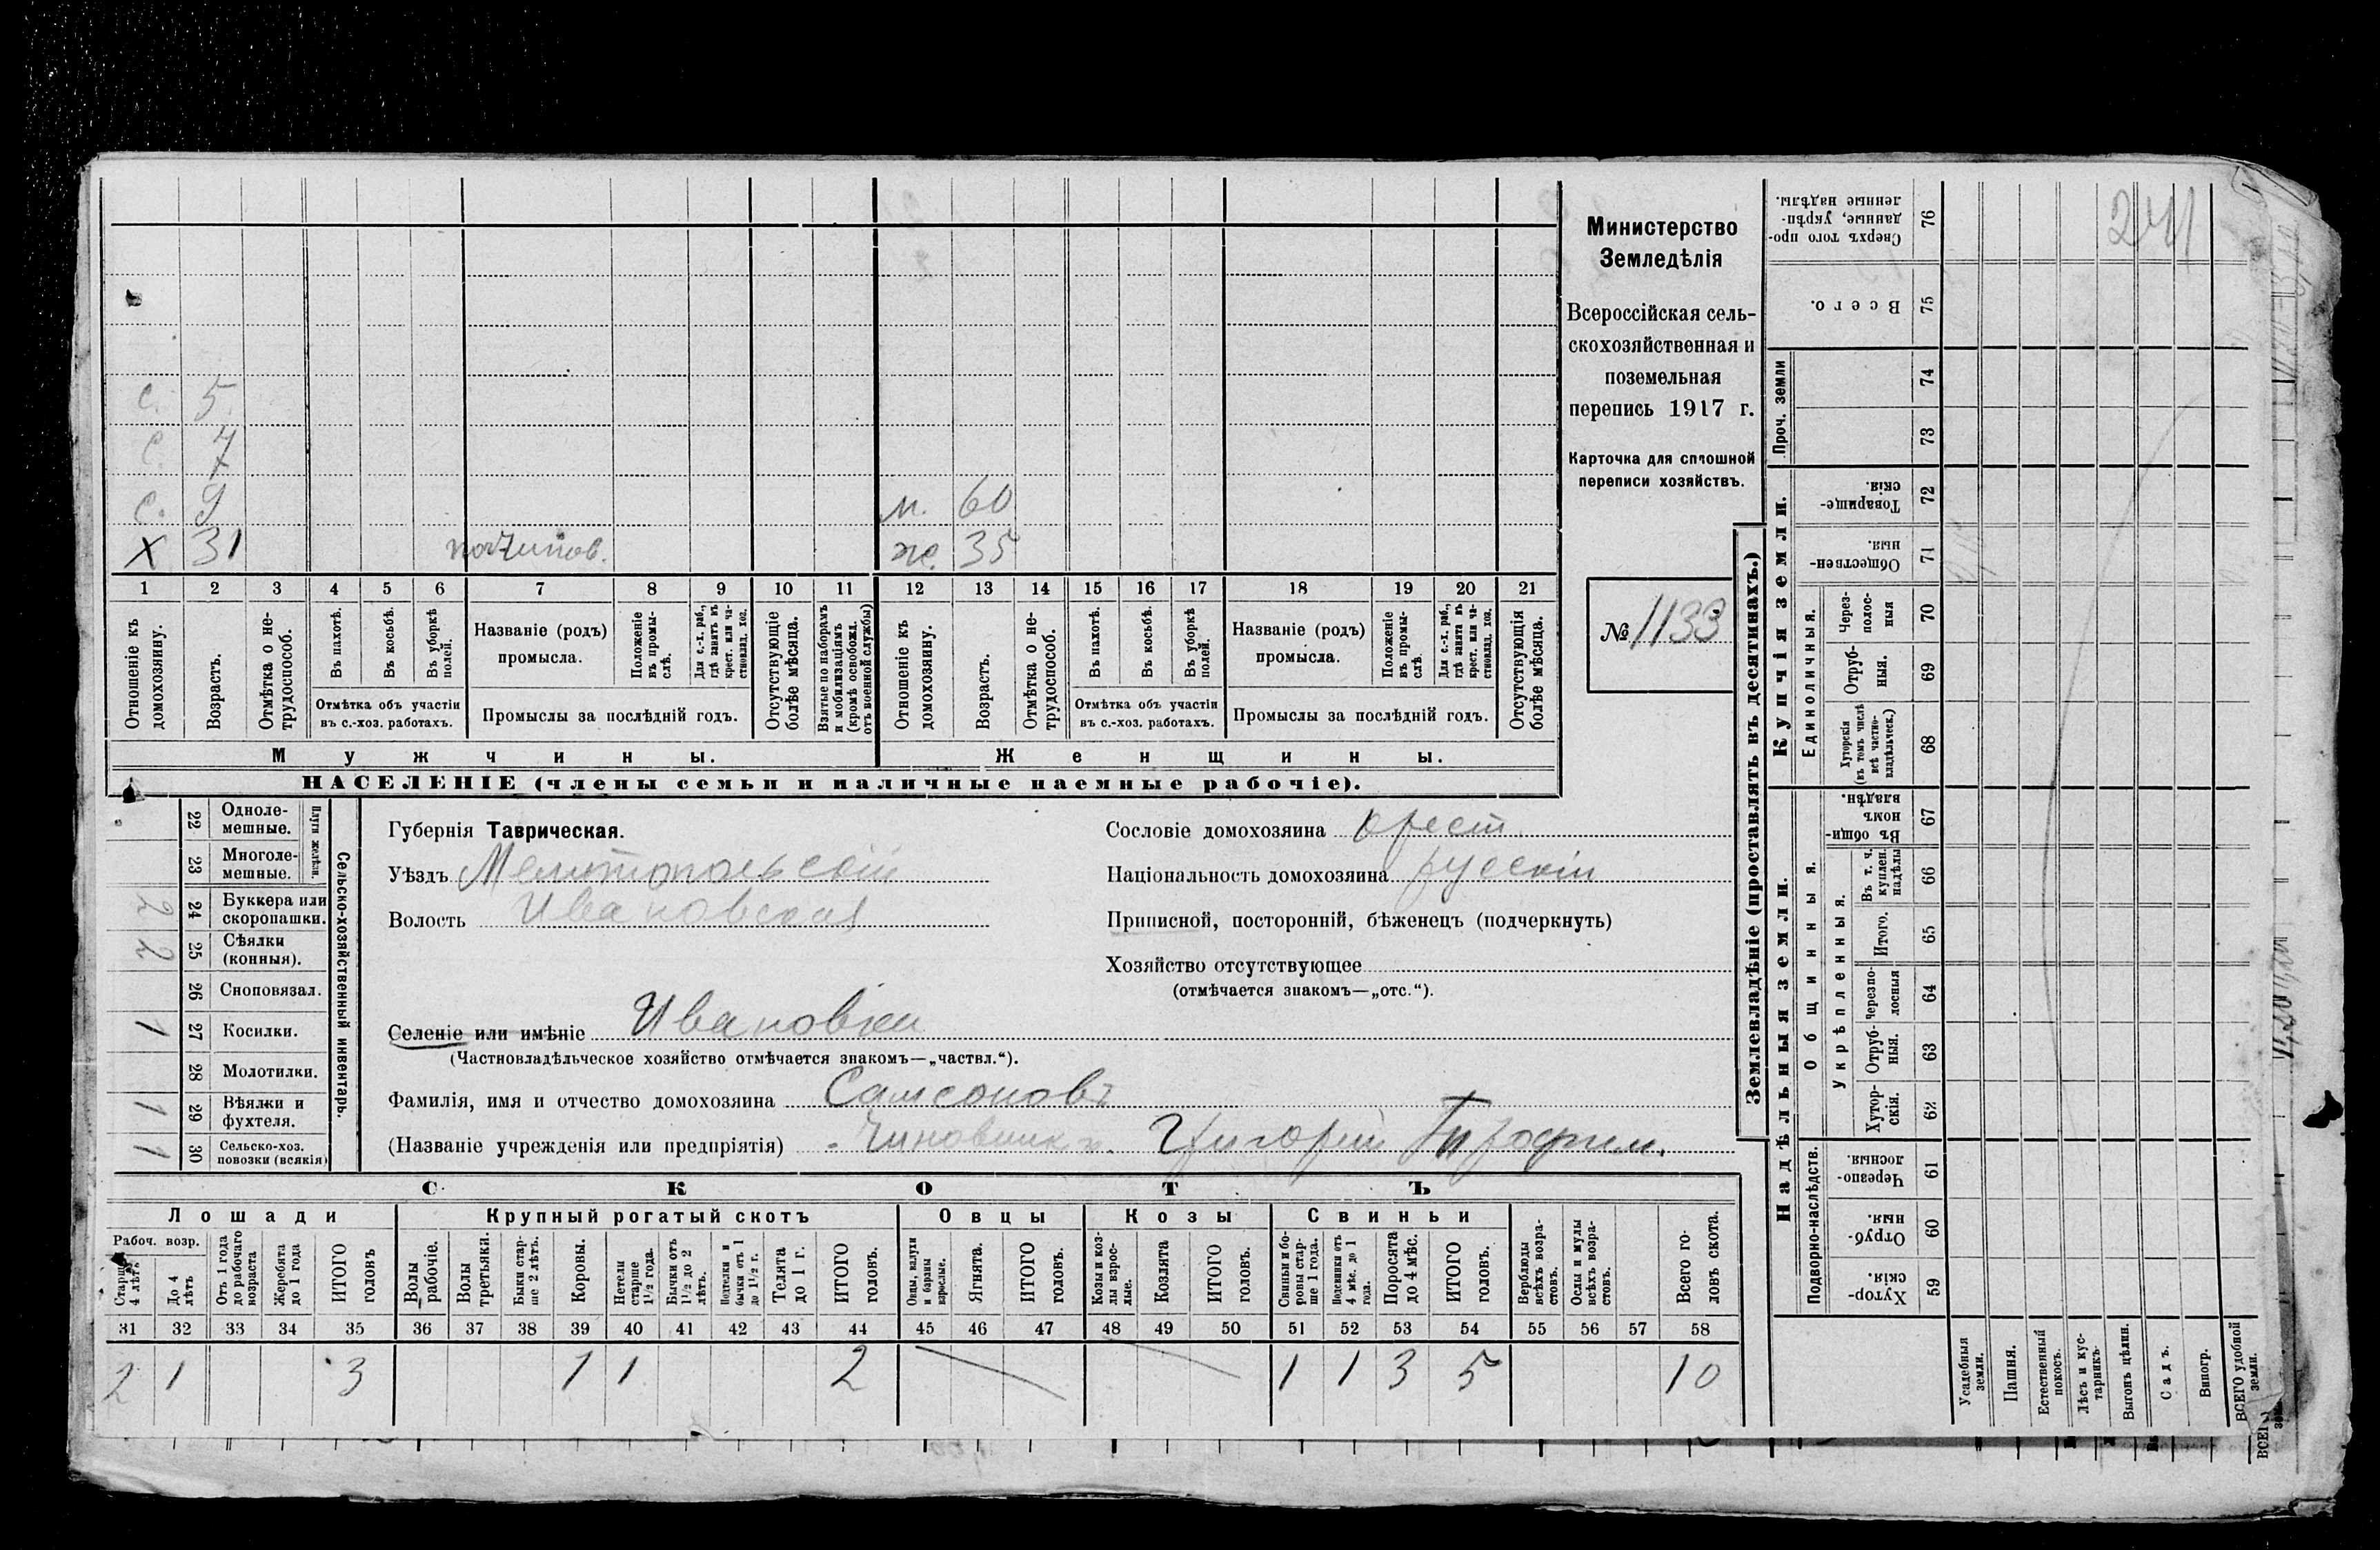 с. 5.
с. 7
с. 9 м. 60
х 31 ж. 35
1 2 3 4 5 6 7 8 9 10 11 12 13 14 15 16 17 18 19 20 21
Отношеніе къ домохозяину.
Возрастъ.
Отмѣтка о нетрудоспособ.
Въ пахотѣ.
Въ косьбѣ.
Въ уборкѣ полей.
Отмѣтка объ участіи
въ с.-хоз. работахъ.
Названіе (родъ)
промысла.
Положеніе въ промыслѣ.
Для с.-х. раб., гдѣ занятъ въ крест. или частновлад. хоз.
Промыслы за послѣдній годъ.
Отсутствующіе болѣе мѣсяца.
Взятые по наборамъ и мобилизаціямъ (кромѣ освобожд. отъ военной службы)
Отношеніе къ домохозяину.
Возрастъ.
Отмѣтка о нетрудоспособ.
Въ пахотѣ.
Въ косьбѣ.
Въ уборкѣ полей.
Отмѣтка объ участіи
въ с.-хоз. работахъ.
Названіе (родъ)
промысла.
Положеніе въ промыслѣ.
Для с.-х. раб., гдѣ занята въ крест. или частновлад. хоз.
Промыслы за послѣдній годъ.
Отсутствующія болѣе мѣсяца.
Мужчины. Женщины.
НАСЕЛЕНІЕ (члены семьи и наличные наемные рабочіе).
Министерство
Земледѣлія
Всероссійская сель-
скохозяйственная и
поземельная
перепись 1917 г.
Карточка для сплошной
переписи хозяйствъ.
№ 1133
Сельско-хозяйственный инвентарь.
Плуги желѣзн.
22 Одноле-
мешные.
23 Многоле-
мешные.
2 24 Буккера или
скоропашки.
2 25 Сѣялки
(конныя).
26 Сноповязал.
1 27 Косилки.
28 Молотилки.
1 29 Вѣялки и
фухтеля.
1 30 Сельско-хоз.
повозки (всякія)
Губернія Таврическая.
Уѣздъ Мелитопольскій
Волость Ивановская
Сословіе домохозяина крест.
Національность домохозяина русскій
Приписной, посторонній, бѣженецъ (подчеркнуть)
Хозяйство отсутствующее
(отмѣчается знакомъ—„отс.“).
Селеніе или имѣніе Ивановка
(Частновладѣльческое хозяйство отмѣчается знакомъ—„частвл.“).
Фамилія, имя и отчество домохозяина Самсоновъ
(Названіе учрежденія или предпріятія) Чиновникъ. Григорій
СКОТЪ
Лошади Крупный рогатый скотъ Овцы Козы Свиньи
Рабоч. возр.
Старше 4 лѣтъ
До 4 лѣтъ
Отъ 1 года до рабочаго возраста
Жеребята до 1 года
ИТОГО головъ
Волы рабочіе.
Волы третьяки.
Быки старше 2 лѣтъ.
Коровы.
Нетели старше 1½ года.
Бычки отъ 1½ до 2 лѣтъ.
Подтелки и бычки отъ 1 до 1½ г.
Телята до 1 г.
ИТОГО головъ.
Овцы, валухи и бараны взрослые.
Ягнята.
ИТОГО головъ.
Козы и козлы взрослые.
Козлята
ИТОГО головъ.
Свиньи и боровы старше 1 года.
Подсвинки отъ 4 мѣс. до 1 года.
Поросята до 4 мѣс.
ИТОГО головъ.
Верблюды всѣхъ возрастовъ.
Ослы и мулы всѣхъ возрастовъ.
Всего головъ скота.
31 32 33 34 35 36 37 38 39 40 41 42 43 44 45 46 47 48 49 50 51 52 53 54 55 56 57 58
2 1 3 1 1 2 1 1 3 5 10
Землевладѣніе (проставлять въ десятинахъ.)
Надѣльныя земли. Купчія земли. Проч. земли
Подворно-наслѣдств.
Общинныя.
Укрѣпленныя.
Единоличныя.
Хуторскія. 59
Отрубныя. 60
Черезполосныя. 61
Хуторскія. 62
Отрубныя. 63
Черезполосныя 64
Итого. 65
Въ т. ч. куплен. надѣлы 66
Въ общинномъ владѣн. 67
Хуторскія (въ томъ числѣ всѣ частновладѣльческ.) 68
Отрубныя. 69
Черезполосныя 70
Общественныя. 71
Товарищескія. 72
73
74
Всего. 75
Сверхъ того проданные, укрѣпленные надѣлы. 76
241
Усадебныя земли.
Пашня.
Естественный покосъ.
Лѣсъ и кустарникъ.
Выгонъ цѣлин.
Садъ.
Виногр.
ВСЕГО удобной земли.